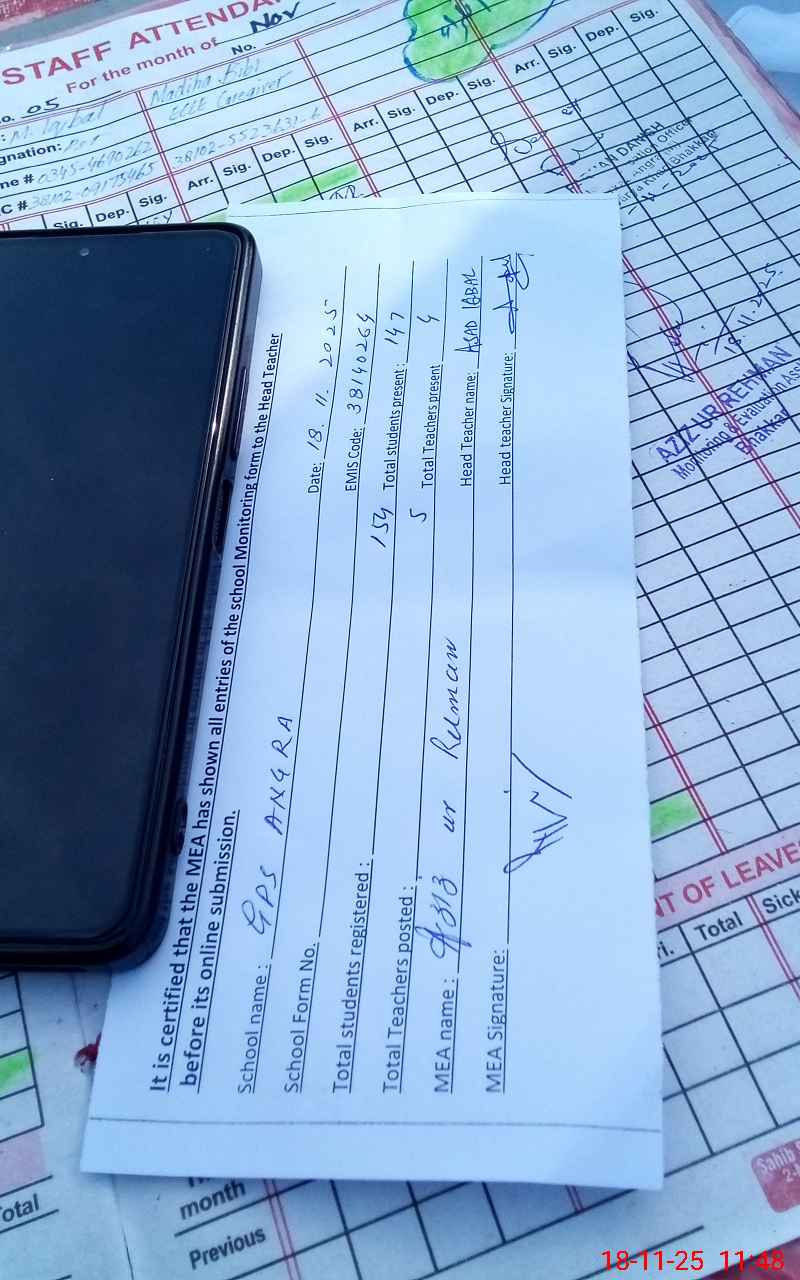 STAFF ATTENDA
For the month of Nov
No.
No. 05
M. Iqbal
Madiha Bibi
gnation: PST
ECCE Caregiver
ne # 0345-4690262
C # 38102-09175465
38102-5523631-6
Arr. Sig. Dep. Sig. Arr. Sig. Dep. Sig. Arr. Sig. Dep. Sig.
Sig. Dep. Sig.
It is certified that the MEA has shown all entries of the school Monitoring form to the Head Teacher
before its online submission.
School name: GPS ANGRA Date: 18. 11. 2025
School Form No. EMIS Code: 38140264
Total students registered: 154 Total students present: 147
Total Teachers posted: 5 Total Teachers present 4
MEA name: Aziz ur Rehman Head Teacher name: ASAD IQBAL
MEA Signature: Head teacher Signature:
18.11.2025
AZIZ UR REHMAN
Monitoring & Evaluation Assi
Bhakkar
NT OF LEAVE
ri. Total Sick
otal
month
Previous
Sahib
18-11-25 11:48